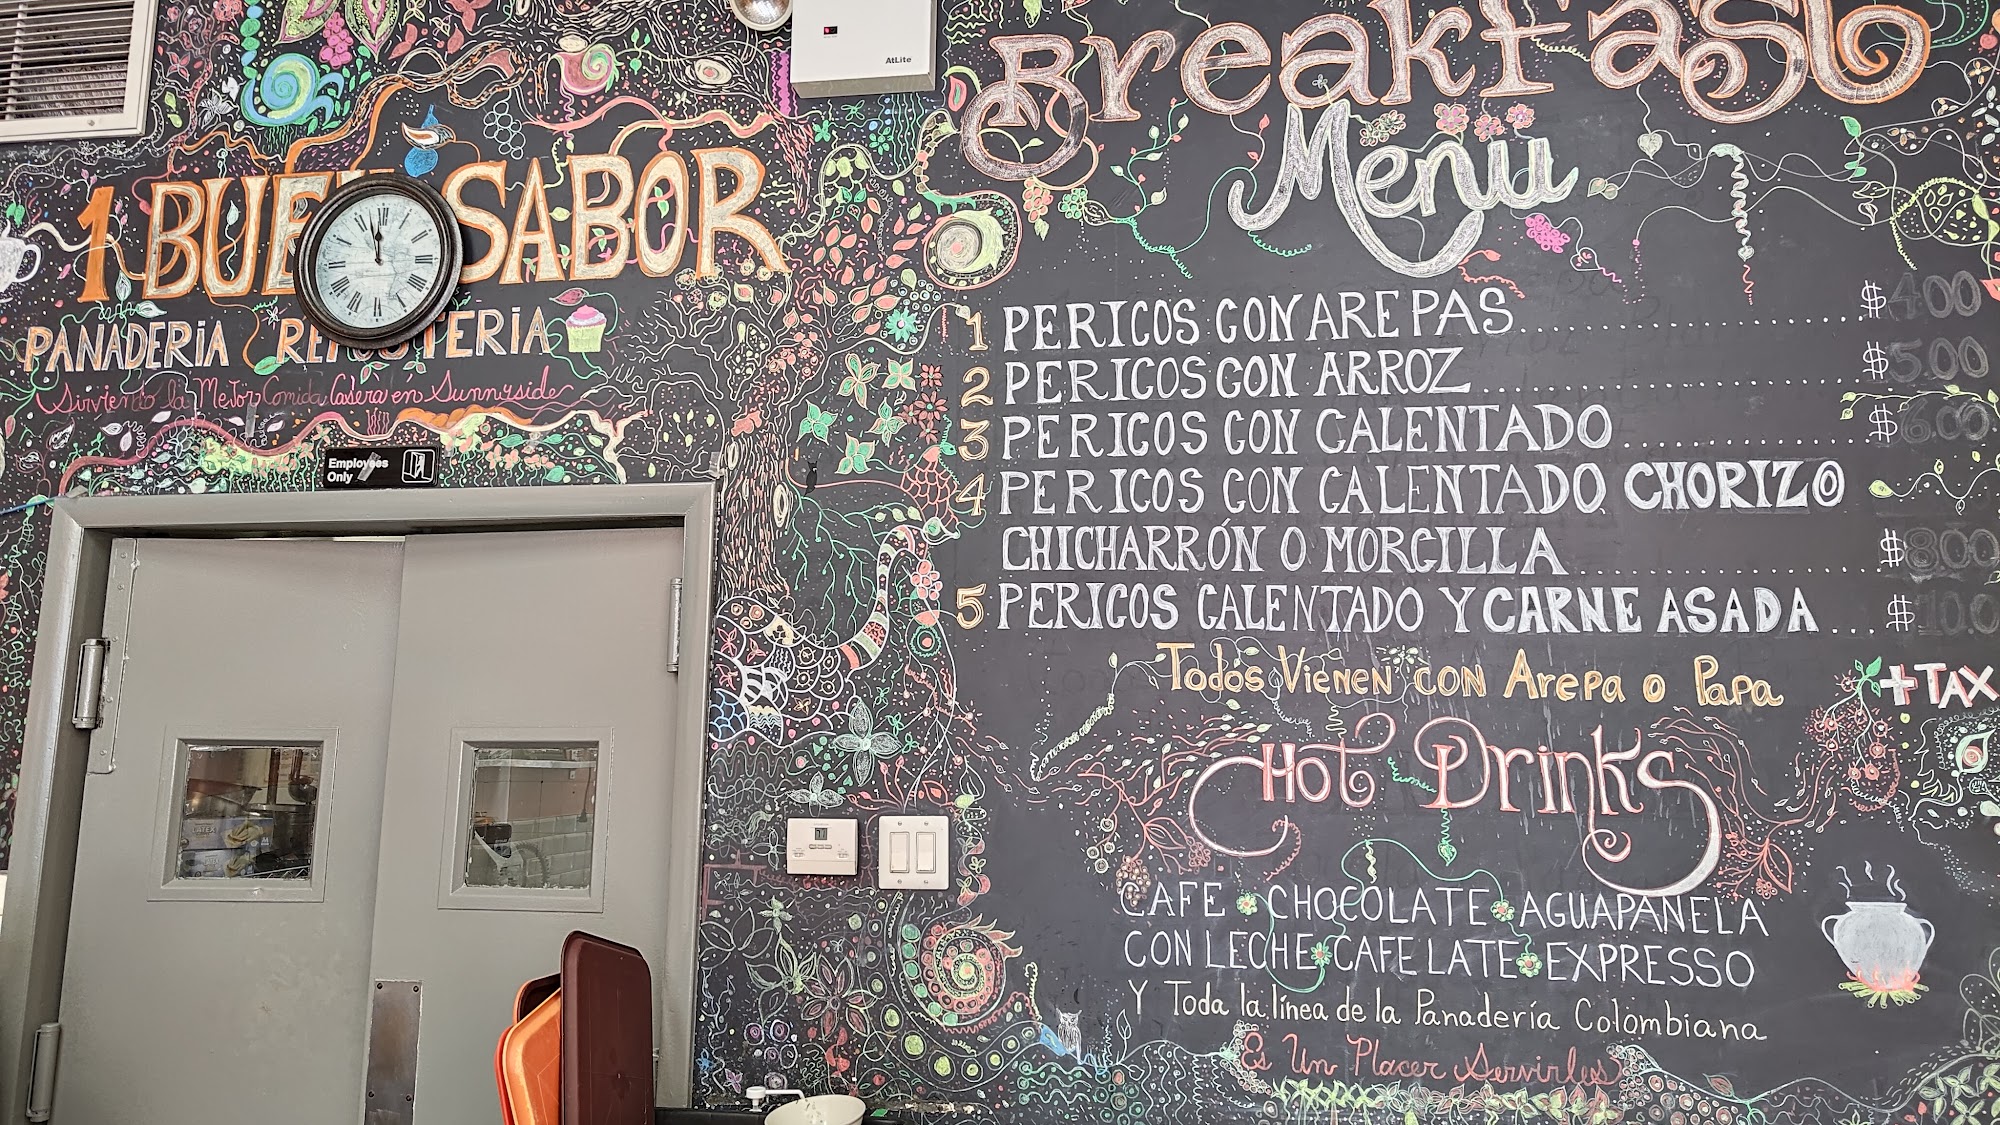 AtLite
1 BUEN SABOR
PANADERiA REPOSTERiA
Sirviendo la Mejor Comida Casera en Sunnyside
Employees
Only
Breakfast
Menu
1 PERICOS CON AREPAS $ 4.00
2 PERICOS CON ARROZ $ 5.00
3 PERICOS CON CALENTADO $ 6.00
4 PERICOS CON CALENTADO CHORIZO
CHICHARRÓN O MORCILLA $ 8.00
5 PERICOS CALENTADO Y CARNE ASADA $ 10.0
Todos Vienen con Arepa o Papa
+TAX
Hot Drinks
CAFE CHOCOLATE AGUAPANELA
CON LECHE CAFE LATE EXPRESSO
Y Toda la línea de la Panadería Colombiana
Es Un Placer Servirles